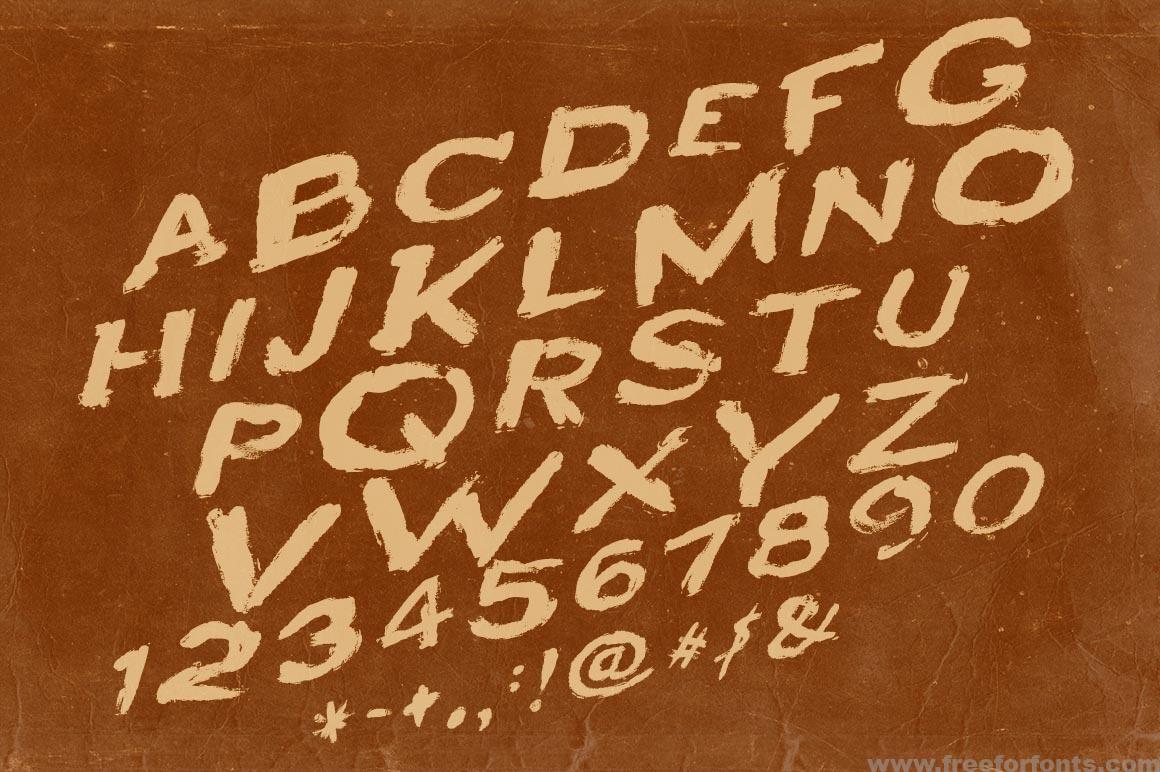 ABCDEFG
HIJKLMNO
PQRSTU
VWXYZ
1234567890
*-+.,:!@#$&
www.freeforfonts.com